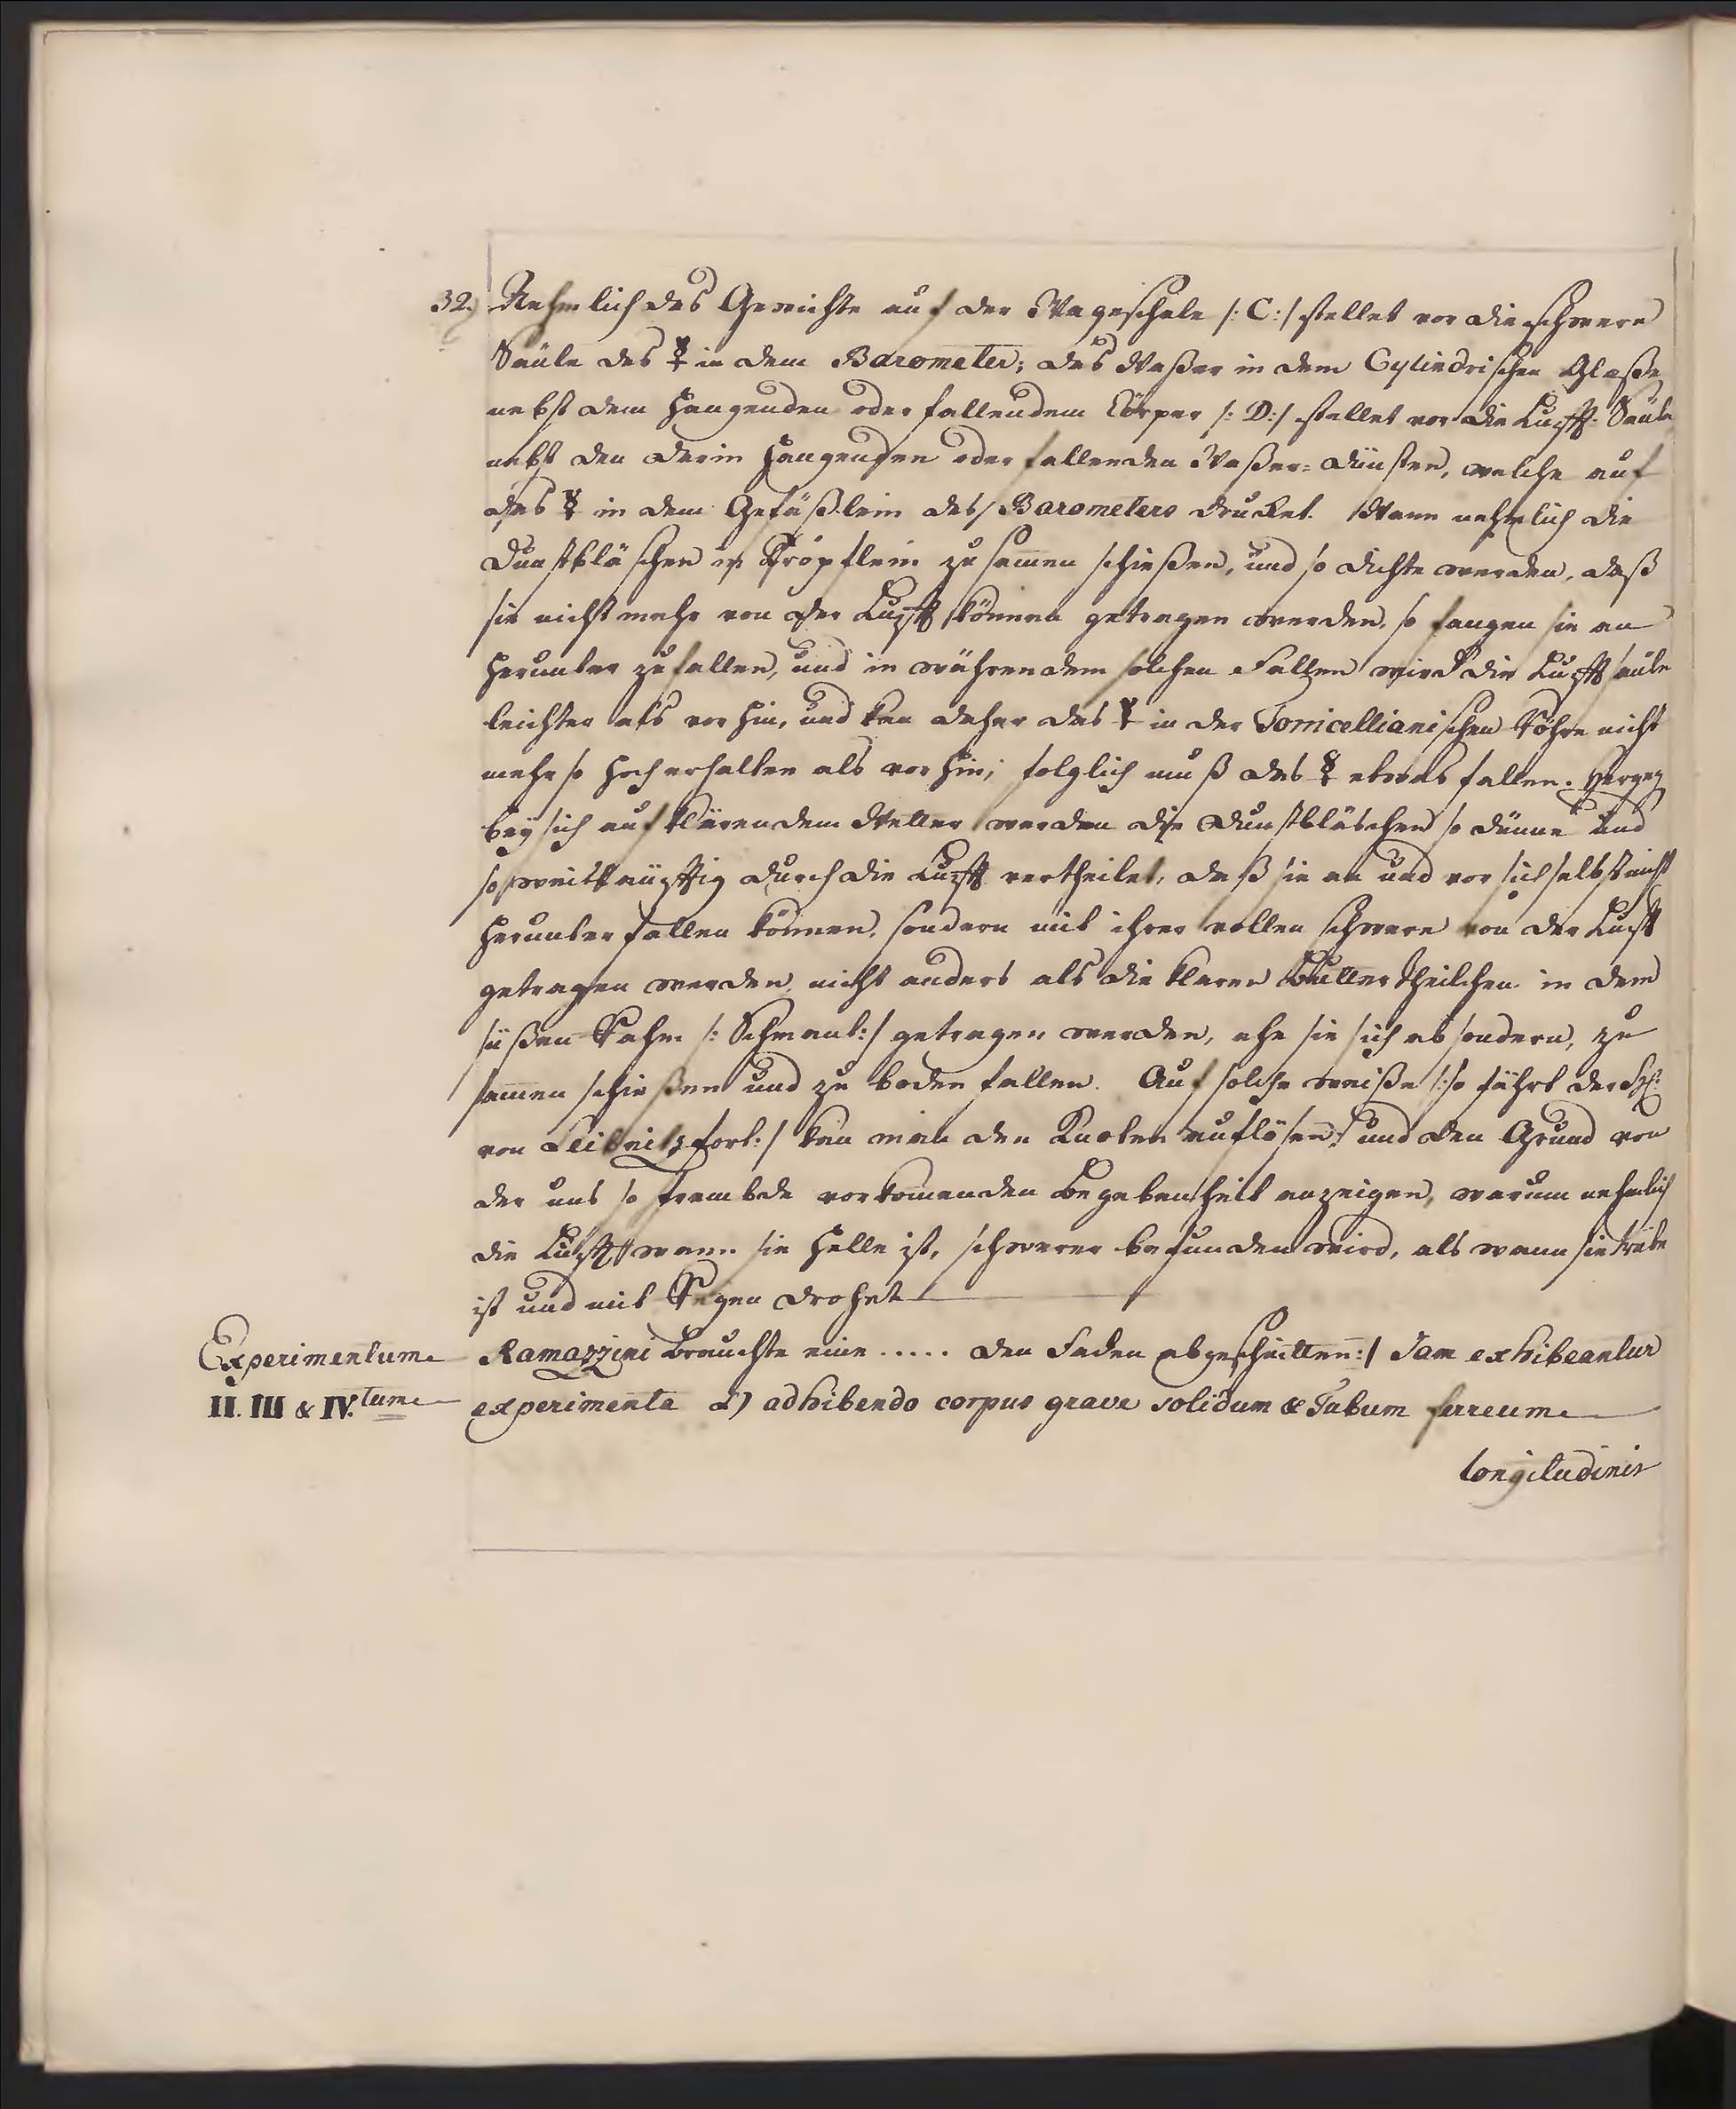 32.) Nehmlich das Gewichte auf der Wageschale /: C :/ stellet vor die schwere
Säule des ☿ in dem Barometer; das Waßer in dem Cylindrischen Glaße
nebst dem hangenden oder fallendem Cörper /: D :/ stellet vor die Lufft-Säule
nebst den darin hangenden oder fallenden Waßer-dünsten, welche auf
das ☿ in dem Gefäßlein des Barometers drucket. Wann nehmlich die
Dunstbläschen in Tröpflein zusam̄en schießen, und so dichte werden, daß
sie nicht mehr von der Lufft können getragen werden, so fangen sie an
herunter zu fallen, und in währendem solchen Fallen wird die Lufftsäule
leichter als vorhin, und kan daher das ☿ in der Torricellianischen Röhre nicht
mehr so hoch erhalten als vorhin; folglich muß das ☿ etwas fallen. Hergeg.
bey sich aufklärendem Wetter werden die Dunstbläschen so dünne und
so weitläufftig durch die Lufft vertheilet, daß sie an und vor sich selbst nicht
herunter fallen können, sondern mit ihrer vollen schwere von der Lufft
getragen werden, nicht anders als die klaren Buttertheilchen in dem
süßen Rahm /: Schmant :/ getragen werden, ehe sie sich absondern, zu
sam̄en schießen und zu boden fallen. Auf solche weiße /: so fährt der H:
von Leibnitz fort :/ kan man den Knoten auflösen, und den Grund von
der uns so frembde vorkom̄enden Begebenheit anzeigen, warum nehmlich
die Lufft wann sie helle ist, schwerer befunden wird, als wann sie trübe
ist und mit Regen drohet
Experimentum Ramazzini brauchte eine ..... den Faden abgeschnitten :/ Jam exhibeantur
II. III & IV.tum experimenta α) adhibendo corpus grave solidum & Tubum ferreum
longitudinis